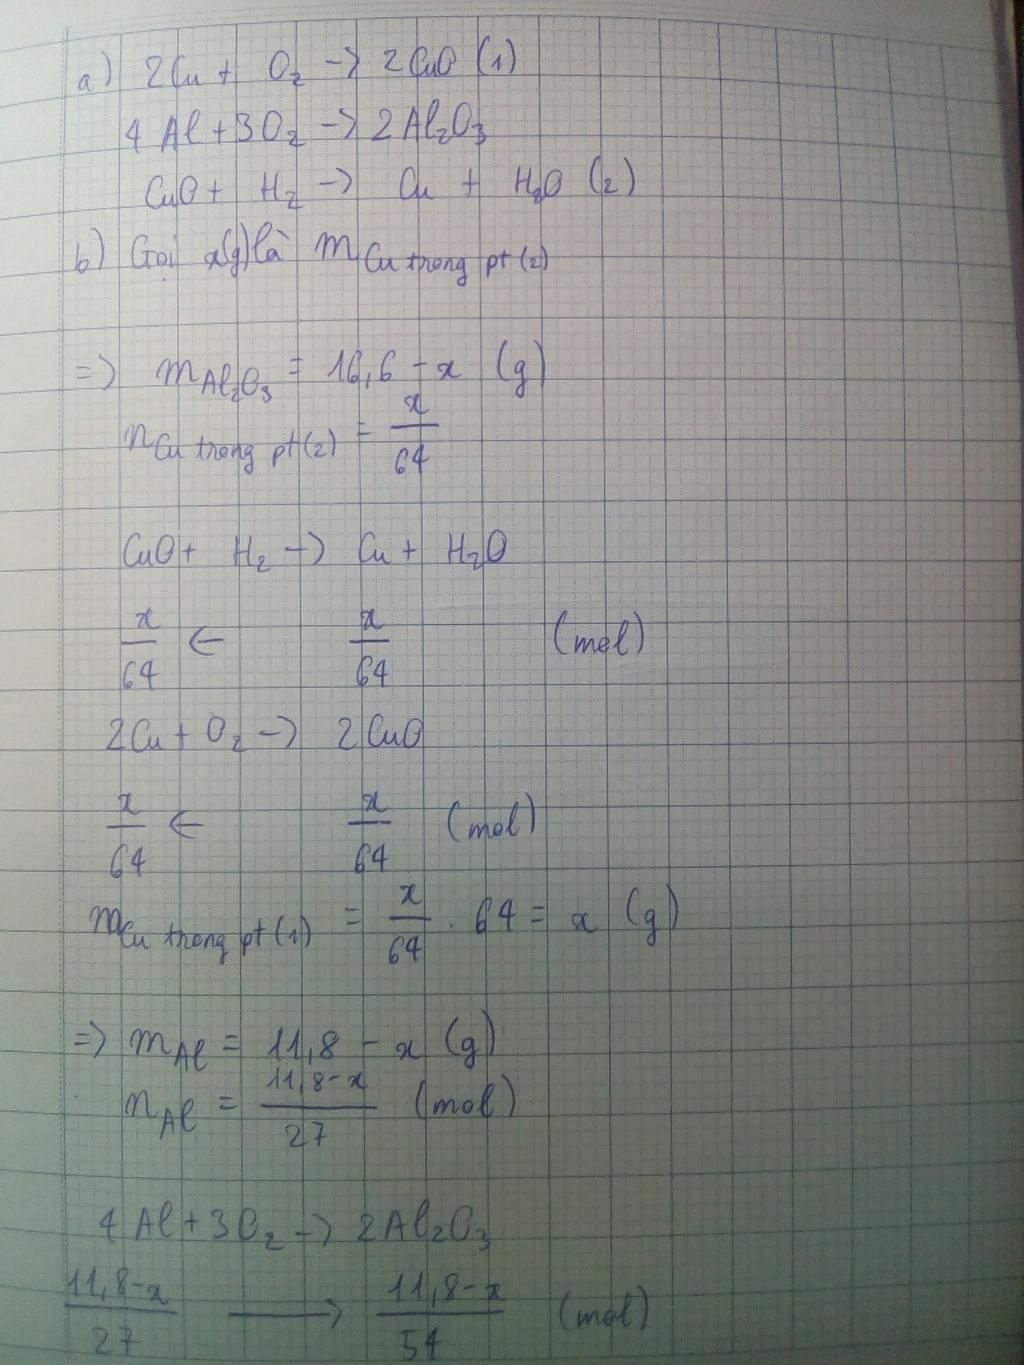 a) 2Cu + O₂ -> 2CuO (1)
4Al + 3O₂ -> 2Al₂O₃
CuO + H₂ -> Cu + H₂O (2)
b) Gọi x(g) là m Cu trong pt(2)
=> m Al₂O₃ = 16,6 - x (g)
n Cu trong pt(2) = x/64
CuO + H₂ -> Cu + H₂O
x/64 <- x/64 (mol)
2Cu + O₂ -> 2CuO
x/64 <- x/64 (mol)
m Cu trong pt(1) = x/64 . 64 = x (g)
=> m Al = 11,8 - x (g)
n Al = 11,8-x/27 (mol)
4Al + 3O₂ -> 2Al₂O₃
11,8-x/27 -> 11,8-x/54 (mol)